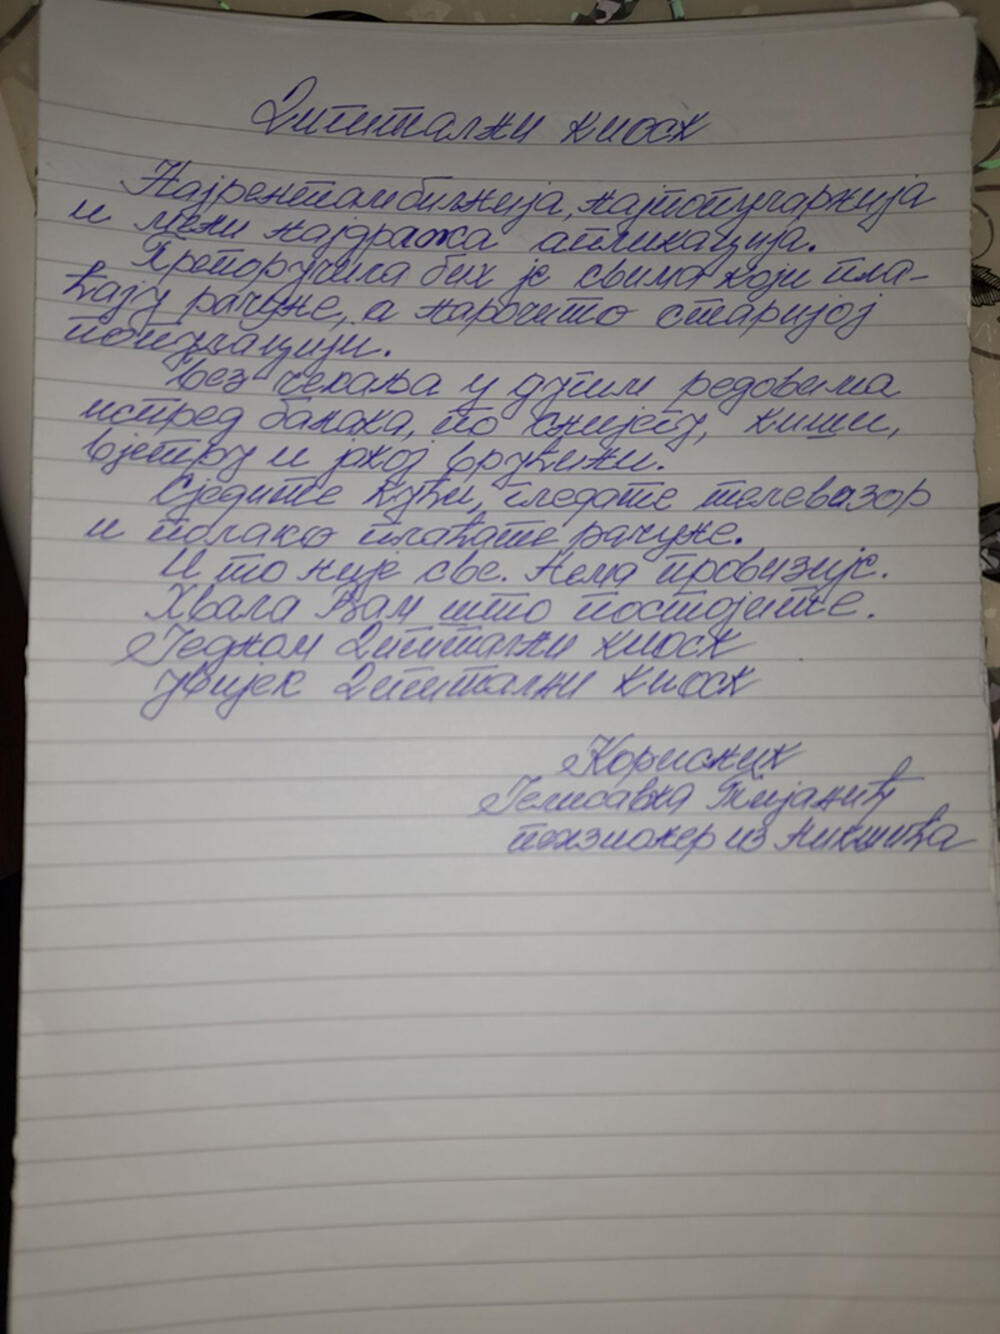 Дигитални киоск
Најрентабилнија, најпопуларнија
и мени најдража апликација.
Препоручила бих је свима који пла-
ћају рачуне, а нарочито старијој
популацији.
Без чекања у дугим редовима
испред банака, по снијегу, киши,
вјетру и јакој врућини.
Сједите кући, гледате телевизор
и полако плаћате рачуне.
И то није све. Нема провизије.
Хвала Вам што постојите.
Једном Дигитални киоск
увијек Дигитални киоск
Корисник
Јелисавка Тијанић
пензионер из Никшића